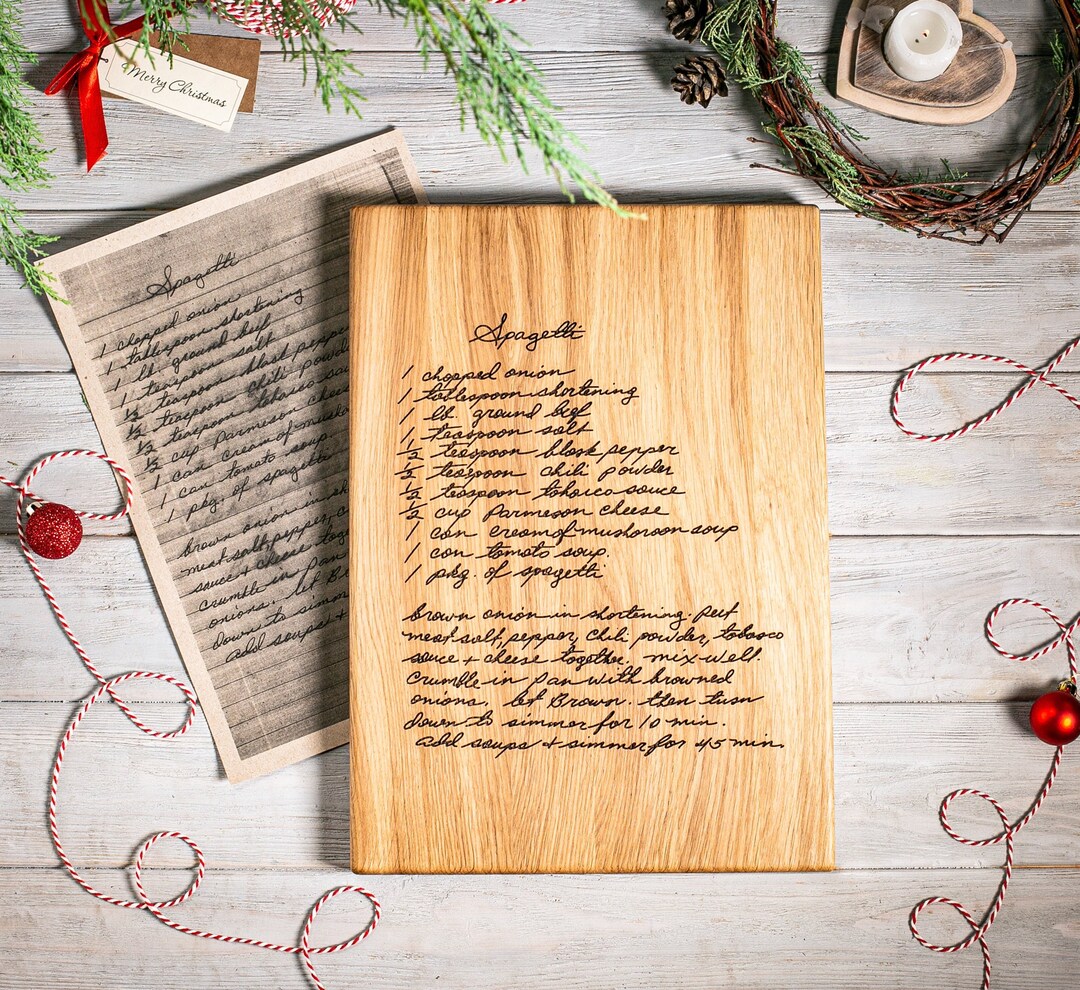 Merry Christmas
Spagetti
1 chopped onion
1 tablespoon shortening
1 lb. ground beef
1 teaspoon salt
1/2 teaspoon black pepper
1/2 teaspoon chili powde
1/2 teaspoon tobasco sau
1/2 cup Parmeson chee
1 can cream of mush
1 can tomato soup
1 pkg. of spagetti
brown onion in sh
meat salt, pepper, c
sauce + cheese tog
crumble in pan
onions. let B
down to simm
add soups +
Spagetti
1 chopped onion
1 tablespoon shortening
1 lb. ground beef
1 teaspoon salt
1/2 teaspoon black pepper
1/2 teaspoon chili powder
1/2 teaspoon tobasco sauce
1/2 cup Parmeson cheese
1 can cream of mushoroon soup
1 can tomato soup.
1 pkg. of spagetti
brown onion in shortening. put
meat salt, pepper, chili powder, tobasco
sauce + cheese together. mix well.
crumble in pan with browned
onions. let Brown. then turn
down to simmer for 10 min.
add soups + simmer for 45 min.